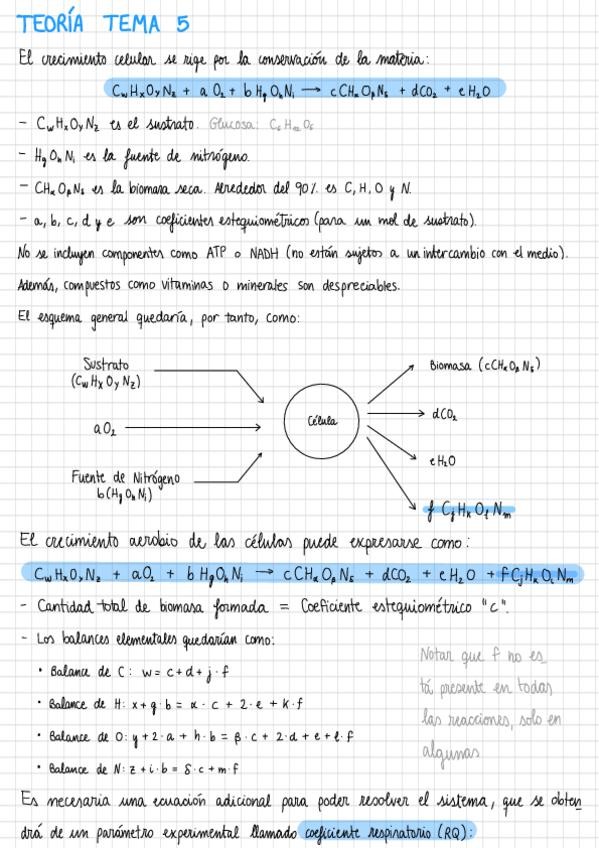 TEORÍA TEMA 5
El crecimiento celular se rige por la conservación de la materia:
CwHxOyNz + a O2 + b HgOhNi → c CHαOβNδ + d CO2 + e H2O
- CwHxOyNz es el sustrato. Glucosa: C6H12O6
- HgOhNi es la fuente de nitrógeno.
- CHαOβNδ es la biomasa seca. Alrededor del 90% es C, H, O y N.
- a, b, c, d y e son coeficientes estequiométricos (para un mol de sustrato).
No se incluyen componentes como ATP o NADH (no están sujetos a un intercambio con el medio).
Además, compuestos como vitaminas o minerales son despreciables.
El esquema general quedaría, por tanto, como:
Sustrato
(CwHxOyNz)
a O2
Fuente de Nitrógeno
b(HgOhNi)
Célula
Biomasa (cCHαOβNδ)
dCO2
eH2O
f CjHkOlNm
El crecimiento aerobio de las células puede expresarse como:
CwHxOyNz + aO2 + b HgOhNi → cCHαOβNδ + dCO2 + e H2O + f CjHkOlNm
- Cantidad total de biomasa formada = Coeficiente estequiométrico "c".
- Los balances elementales quedarían como:
• Balance de C: w = c + d + j · f
• Balance de H: x + g · b = α · c + 2 · e + k · f
• Balance de O: y + 2 · a + h · b = β · c + 2 · d + e + l · f
• Balance de N: z + i · b = δ · c + m · f
Notar que f no es
tá presente en todas
las reacciones, solo en
algunas
Es necesaria una ecuación adicional para poder resolver el sistema, que se obten
drá de un parámetro experimental llamado coeficiente respiratorio (RQ):